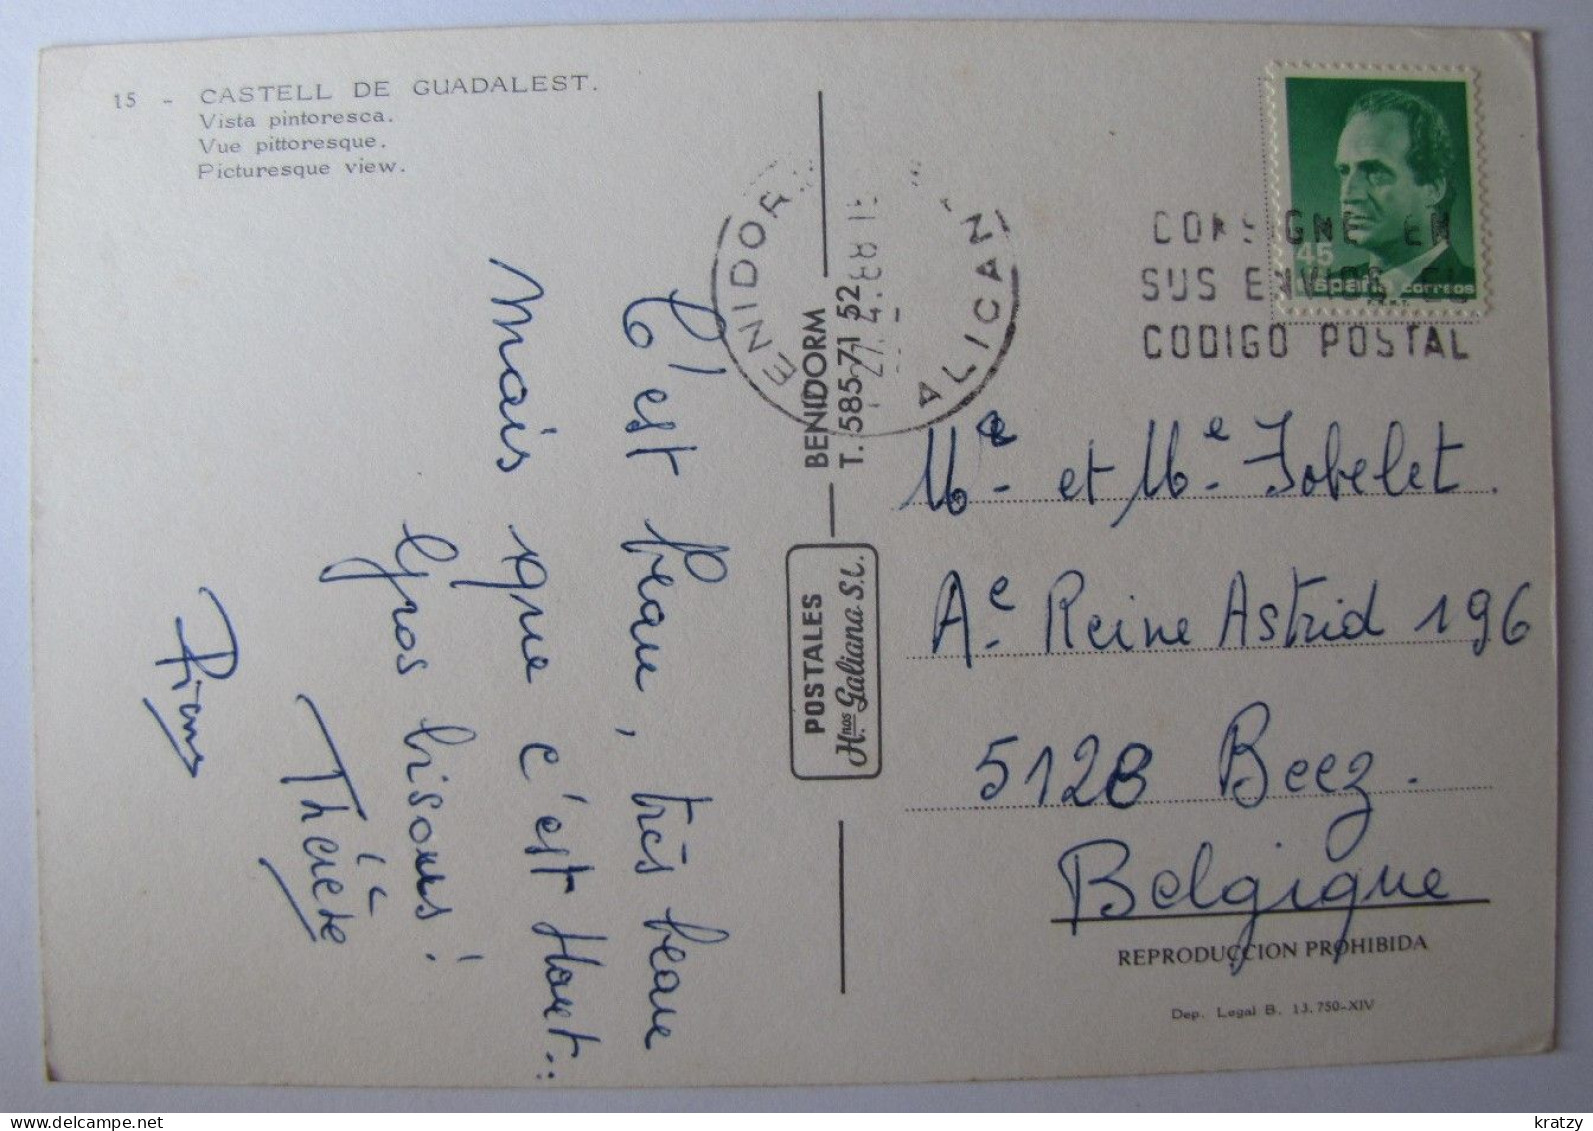 15 - CASTELL DE GUADALEST.
Vista pintoresca.
Vue pittoresque.
Picturesque view.
C'est beau, très beau
Mais que c'est Haut..
Gros bisous!
Thérèse
BENIDORM
T. 585 71 52
POSTALES
Hnos Galiana S.L.
BENIDORM
ALICANT
27.4.88
CONSIGNE EN
SUS ENVIOS EL
CODIGO POSTAL
45
españa correos
Me et Me Jobelet.
Ae Reine Astrid 196
5128 Beez.
Belgique
REPRODUCCION PROHIBIDA
Dep. Legal B. 13.750-XIV
kratzy